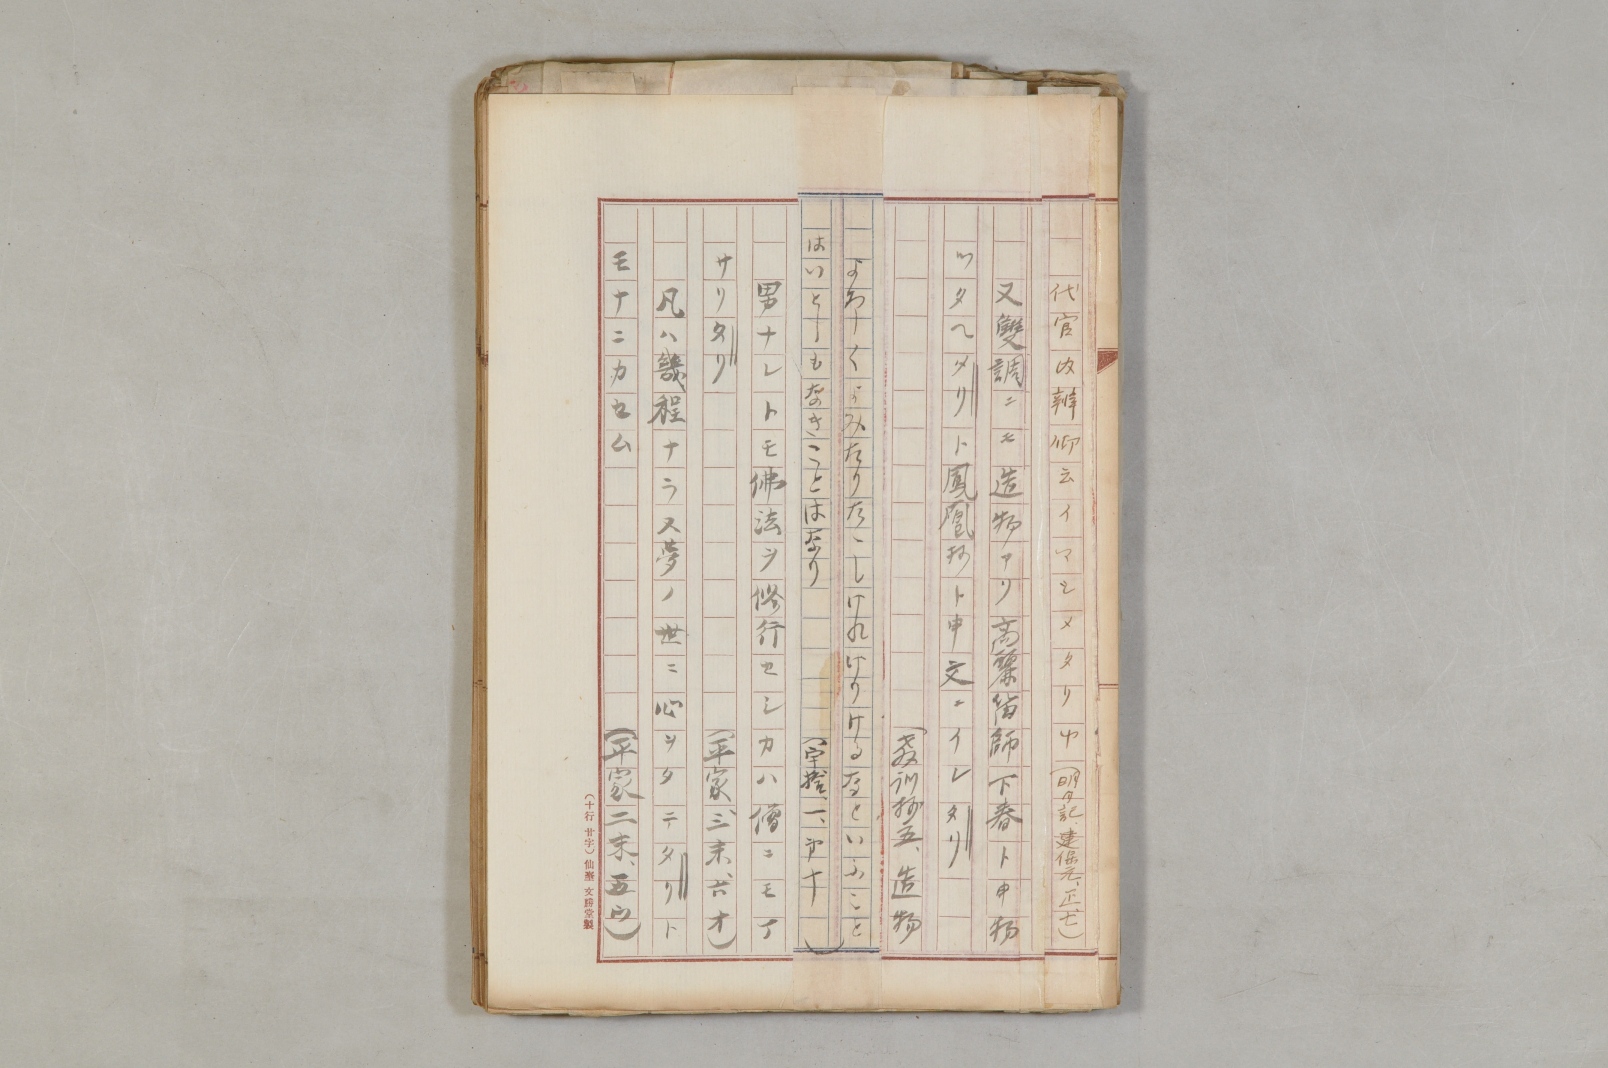 代官内辨仰云イマシメタリヤ(明月記、建保元、正、七)
又雙調ニモ造物アリ高麗笛師下春ト申物
ツタヘタリト鳳凰抄ト申文ニイレタリ
(教訓抄五、造物
よおなくよみたりたこしけれけりけるなといふこと
はいとしもなきことはなり(宇拾、一、第十)
男ナレトモ佛法ヲ修行セシカハ僧ニモナ
サリタリ(平家三末、廿六オ)
凡ハ幾程ナラス夢ノ世ニ心ヲタテタリト
モナニカセム(平家二末、五ウ)
(十行廿字)仙臺文勝堂製